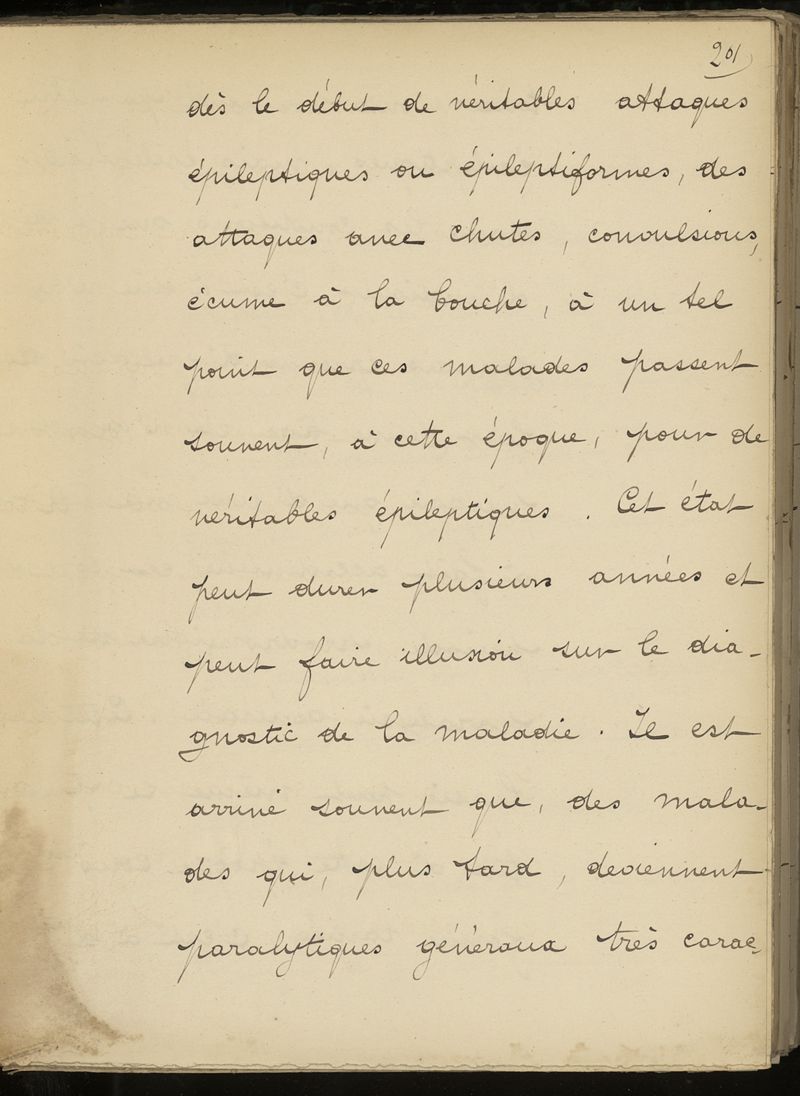 201
dès le début de véritables attaques
épileptiques ou épileptiformes, des
attaques avec chutes, convulsions,
écume à la bouche, à un tel
point que ces malades passent
souvent, à cette époque, pour de
véritables épileptiques. Cet état
peut durer plusieurs années et
peut faire illusion sur le dia-
gnostic de la maladie. Il est
arrivé souvent que, des mala-
des qui, plus tard, deviennent
paralytiques généraux très carac-